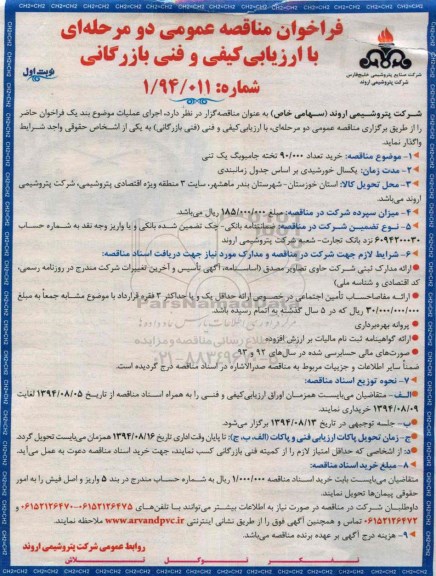 فراخوان مناقصه عمومی دو مرحله‌ای
با ارزیابی‌کیفی و فنی بازرگانی
نوبت اول
شماره: ۱/۹۴/۰۱۱
شرکت صنایع پتروشیمی خلیج‌فارس
شرکت پتروشیمی اروند
شرکت پتروشیمی اروند (سهامی خاص) به عنوان مناقصه‌گزار در نظر دارد، اجرای عملیات موضوع بند یک فراخوان حاضر
را از طریق برگزاری مناقصه عمومی دو مرحله‌ای، با ارزیابی‌کیفی و فنی (فنی بازرگانی) به یکی از اشخاص حقوقی واجد شرایط
واگذار نماید.
۱- موضوع مناقصه: خرید تعداد ۹۰/۰۰۰ تخته جامبوبگ یک تنی
۲- مدت زمان: یکسال خورشیدی بر اساس جدول زمانبندی
۳- محل تحویل کالا: استان خوزستان- شهرستان بندر ماهشهر، سایت ۳ منطقه ویژه اقتصادی پتروشیمی، شرکت پتروشیمی
اروند می‌باشد.
۴- میزان سپرده شرکت در مناقصه: مبلغ ۱۸۵/۰۰۰/۰۰۰ ریال می‌باشد.
۵- نوع تضمین شرکت در مناقصه: ضمانتنامه بانکی - چک تضمین شده بانکی و یا واریز وجه نقد به شماره حساب
۶۰۹۴۲۰۰۳۰ نزد بانک تجارت- شعبه شرکت پتروشیمی اروند
۶- شرایط لازم جهت شرکت در مناقصه و مدارک مورد نیاز جهت دریافت اسناد مناقصه:
ارائه مدارک ثبتی شرکت حاوی تصاویر مصدق (اساسنامه، آگهی تأسیس و آخرین تغییرات شرکت مندرج در روزنامه رسمی،
کد اقتصادی و شناسه ملی)
ارائه مفاصاحساب تأمین اجتماعی در خصوص ارائه حداقل یک و یا حداکثر ۲ فقره قرارداد با موضوع مشابه جمعاً به مبلغ
۳۰/۰۰۰/۰۰۰/۰۰۰ ریال که در ۵ سال گذشته به اتمام رسیده باشد.
پروانه بهره‌برداری
ارائه گواهینامه ثبت نام مالیات بر ارزش افزوده
صورت‌های مالی حسابرسی شده در سال‌های ۹۲ و ۹۳
ضمناً سایر اطلاعات و جزییات مربوط به مناقصه صدرالاشاره در اسناد مناقصه درج گردیده است.
۷- نحوه توزیع اسناد مناقصه:
الف- متقاضیان می‌بایست همزمان اوراق ارزیابی‌کیفی و فنی را به همراه اسناد مناقصه از تاریخ ۱۳۹۴/۰۸/۰۵ لغایت
۱۳۹۴/۰۸/۰۹ خریداری نمایند.
ب- جلسه توجیهی در تاریخ ۱۳۹۴/۰۸/۱۳ برگزار می‌شود.
ج- زمان تحویل پاکات ارزیابی فنی و پاکات (الف، ب، ج): تا پایان وقت اداری تاریخ ۱۳۹۴/۰۸/۱۶ همزمان می‌بایست تحویل گردد.
د: از اشخاصی که حداقل امتیاز لازم را از کمیته فنی بازرگانی کسب نمایند، جهت خرید اسناد مناقصه دعوت به عمل می‌آید.
۸- مبلغ خرید اسناد مناقصه:
متقاضیان می‌بایست بابت خرید اسناد مناقصه ۱/۰۰۰/۰۰۰ ریال به شماره حساب مندرج در بند ۵ واریز و اصل فیش را به امور
حقوقی پیمان‌ها تحویل نمایند.
داوطلبان شرکت در مناقصه در صورت نیاز به اطلاعات بیشتر می‌توانند با تلفن‌های ۰۶۱۵۲۱۲۶۴۷۵-۰۶۱۵۲۱۲۶۴۷۰ و
۰۶۱۵۲۱۲۶۴۷۲ تماس و همچنین آگهی فوق را از طریق نشانی اینترنتی www.arvandpvc.ir ملاحظه نمایند.
۹- هزینه درج آگهی بر عهده برنده مناقصه می‌باشد.
روابط عمومی شرکت پتروشیمی اروند
تفکر توکل تلاش